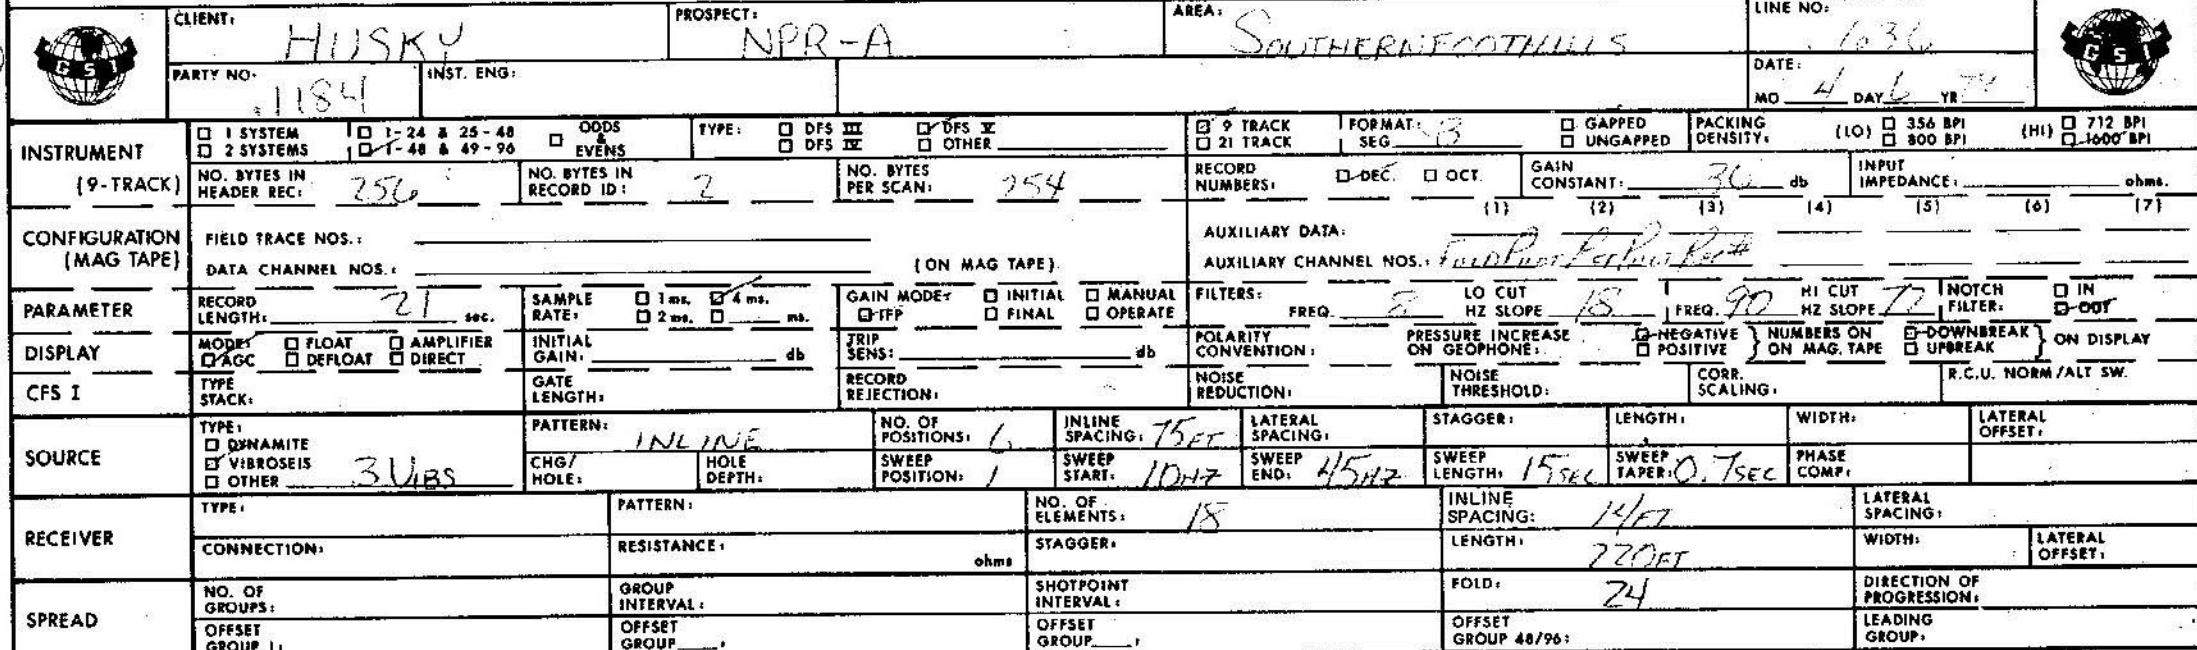 CLIENT: HUSKY PROSPECT: NPR-A AREA: SOUTHERN FOOTHILLS LINE NO: 636
GSI GSI
PARTY NO. 1184 INST. ENG: DATE:
MO 4 DAY 6 YR
INSTRUMENT (9-TRACK)
☐ 1 SYSTEM ☐ 1-24 & 25-48 ☐ ODDS & EVENS TYPE: ☐ DFS III ☑ DFS V ☑ 9 TRACK FORMAT: ☐ GAPPED PACKING DENSITY: (LO) ☐ 356 BPI (HI) ☐ 712 BPI
☐ 2 SYSTEMS ☑ 1-48 & 49-96 ☐ DFS IV ☐ OTHER ☐ 21 TRACK SEG B ☐ UNGAPPED ☐ 800 BPI ☑ 1600 BPI
NO. BYTES IN HEADER REC: 256 NO. BYTES IN RECORD ID: 2 NO. BYTES PER SCAN: 254 RECORD NUMBERS: ☑ DEC. ☐ OCT. GAIN CONSTANT: 36 db INPUT IMPEDANCE: ohms.
CONFIGURATION (MAG TAPE)
(1) (2) (3) (4) (5) (6) (7)
FIELD TRACE NOS.: AUXILIARY DATA:
DATA CHANNEL NOS.: (ON MAG TAPE). AUXILIARY CHANNEL NOS.:
PARAMETER
RECORD LENGTH: 21 sec. SAMPLE RATE: ☐ 1 ms. ☑ 4 ms. ☐ 2 ms. ☐ ms. GAIN MODE: ☐ INITIAL ☐ MANUAL ☑ IFP ☐ FINAL ☐ OPERATE FILTERS: FREQ. 8 LO CUT HZ SLOPE 18 FREQ. 90 HI CUT HZ SLOPE 72 NOTCH FILTER: ☐ IN ☑ OUT
DISPLAY
MODE: ☐ FLOAT ☐ AMPLIFIER ☑ AGC ☐ DEFLOAT ☐ DIRECT INITIAL GAIN: db TRIP SENS: db POLARITY CONVENTION: PRESSURE INCREASE ON GEOPHONE: ☑ NEGATIVE ☐ POSITIVE } NUMBERS ON ON MAG. TAPE ☑ DOWNBREAK ☐ UPBREAK } ON DISPLAY
CFS I TYPE STACK: GATE LENGTH: RECORD REJECTION: NOISE REDUCTION: NOISE THRESHOLD: CORR. SCALING: R.C.U. NORM/ALT SW.
SOURCE
TYPE: ☐ DYNAMITE ☑ VIBROSEIS ☐ OTHER 3 VIBS
PATTERN: INLINE NO. OF POSITIONS: 6 INLINE SPACING: 75 FT LATERAL SPACING: STAGGER: LENGTH: WIDTH: LATERAL OFFSET:
CHG/HOLE: HOLE DEPTH: SWEEP POSITION: 1 SWEEP START: 10HZ SWEEP END: 45HZ SWEEP LENGTH: 15SEC SWEEP TAPER: 0.7SEC PHASE COMP:
RECEIVER
TYPE: PATTERN: NO. OF ELEMENTS: 18 INLINE SPACING: 14FT LATERAL SPACING:
CONNECTION: RESISTANCE: ohms STAGGER: LENGTH: 220FT WIDTH: LATERAL OFFSET:
SPREAD
NO. OF GROUPS: GROUP INTERVAL: SHOTPOINT INTERVAL: FOLD: 24 DIRECTION OF PROGRESSION:
OFFSET GROUP 1: OFFSET GROUP : OFFSET GROUP : OFFSET GROUP 48/96: LEADING GROUP: